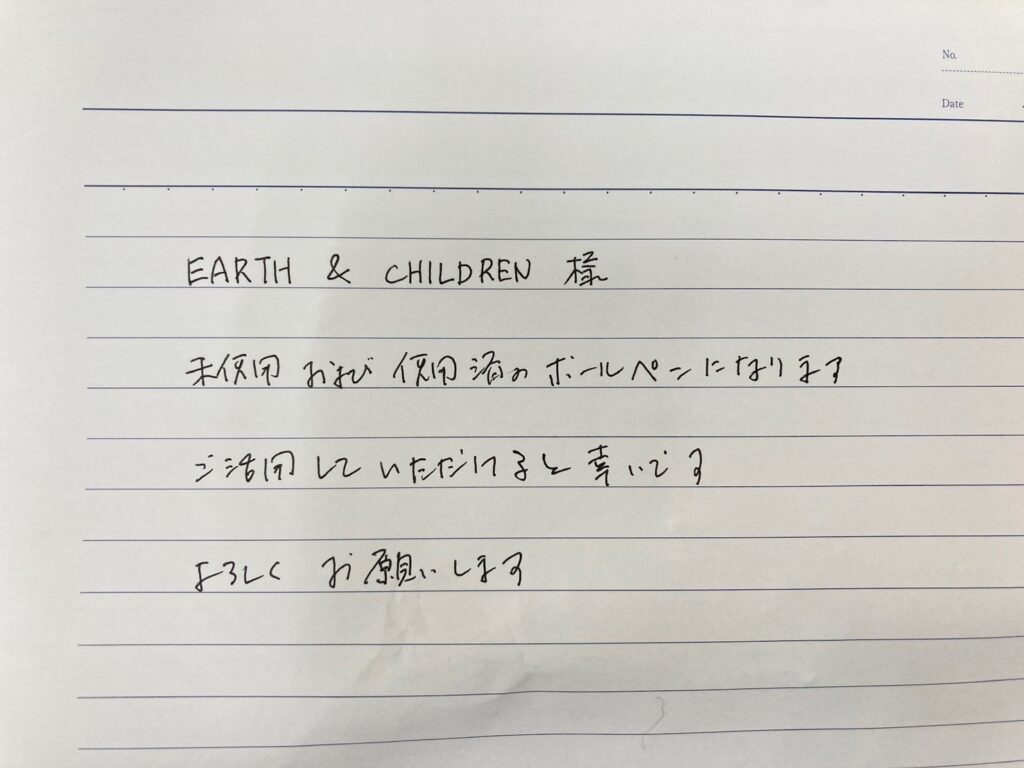 No.
Date
EARTH & CHILDREN 様
未使用 および 使用済のボールペンになります
ご活用していただけると幸いです
よろしく お願いします